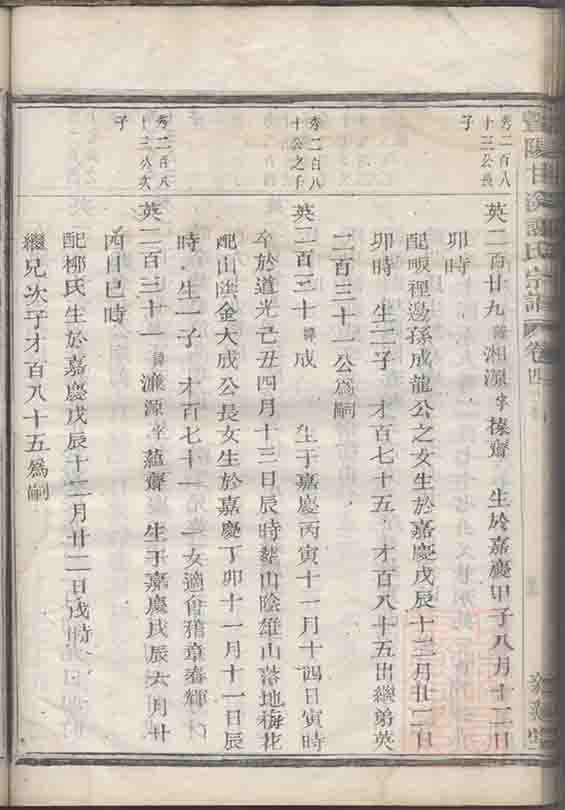 暨陽甘溪謝氏宗譜 卷四
秀二百八
十三公長
子
英二百廿九 諱湘源 字榛齋 生於嘉慶甲子八月十二日
卯時
配畈裡湯孫成龍公之女生於嘉慶戊辰十二月廿二日
卯時 生二子 才百七十五 才百八十五出繼弟英
二百三十一公爲嗣
秀二百八
十公之子
英二百三十 諱成 生于嘉慶丙寅十一月十四日寅時
卒於道光己丑四月十三日辰時葬山陰雄山落地梅花
配山陰金大成公長女生於嘉慶丁卯十一月十一日辰
時 生一子 才百七十一 一女適會稽章春輝
秀二百八
十三公次
子
英二百三十一 諱濂源 字蘊齋 生于嘉慶戊辰六月廿
四日巳時
配楊氏生於嘉慶戊辰十二月廿二日戌時
繼兄次子才百八十五爲嗣